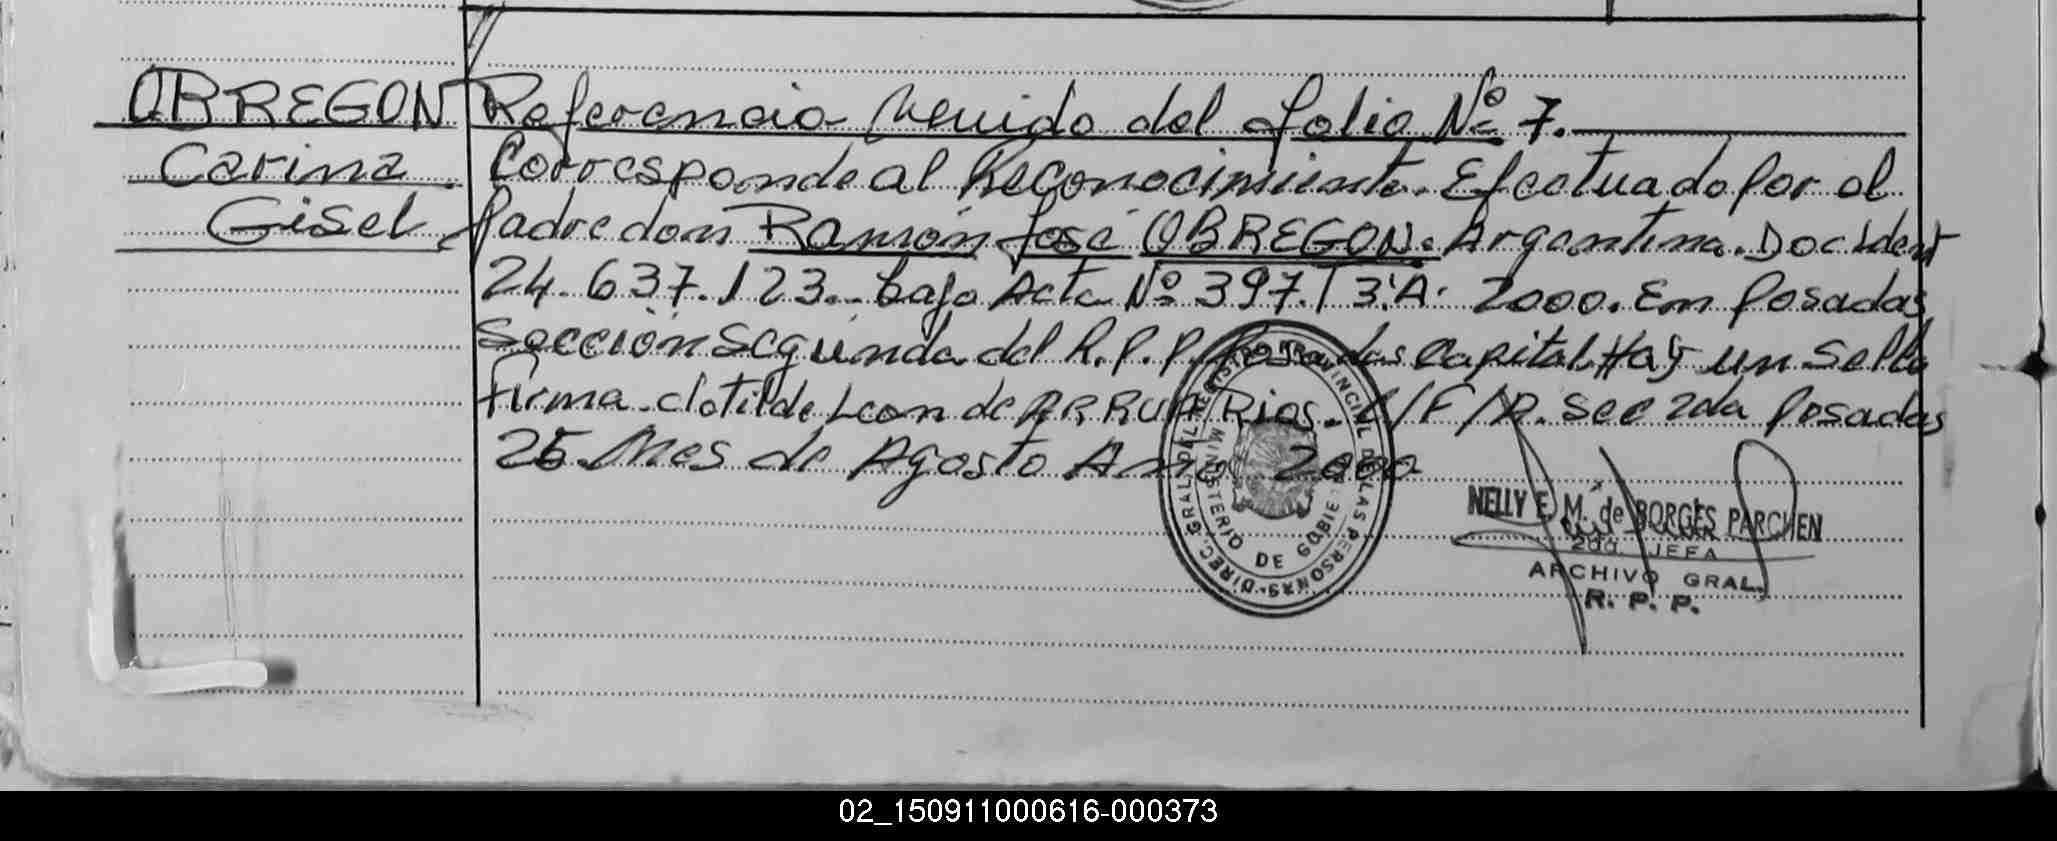 OBREGON Referencia Venida del folio Nº 7.
Carina Corresponde al Reconocimiento. Efectuado por el
Gisel Padre don Ramón José OBREGON. Argentina. Doc Ident
24.637.123. bajo Acta Nº 397. T 3. A. 2000. En Posadas
Sección Segunda del R.P.P. Posadas Capital. Hay un Sello
firma. Clotilde Leon de Rios. O/F/R. Sec 2da Posadas
25. Mes de Agosto Año 2000
DIREC. GRAL. DEL REGISTRO PROVINCIAL DE LAS PERSONAS
MINISTERIO DE GOBIE
NELLY E. M. de BORGES PARCHEN
2da. JEFA
ARCHIVO GRAL.
R. P. P.
02_150911000616-000373